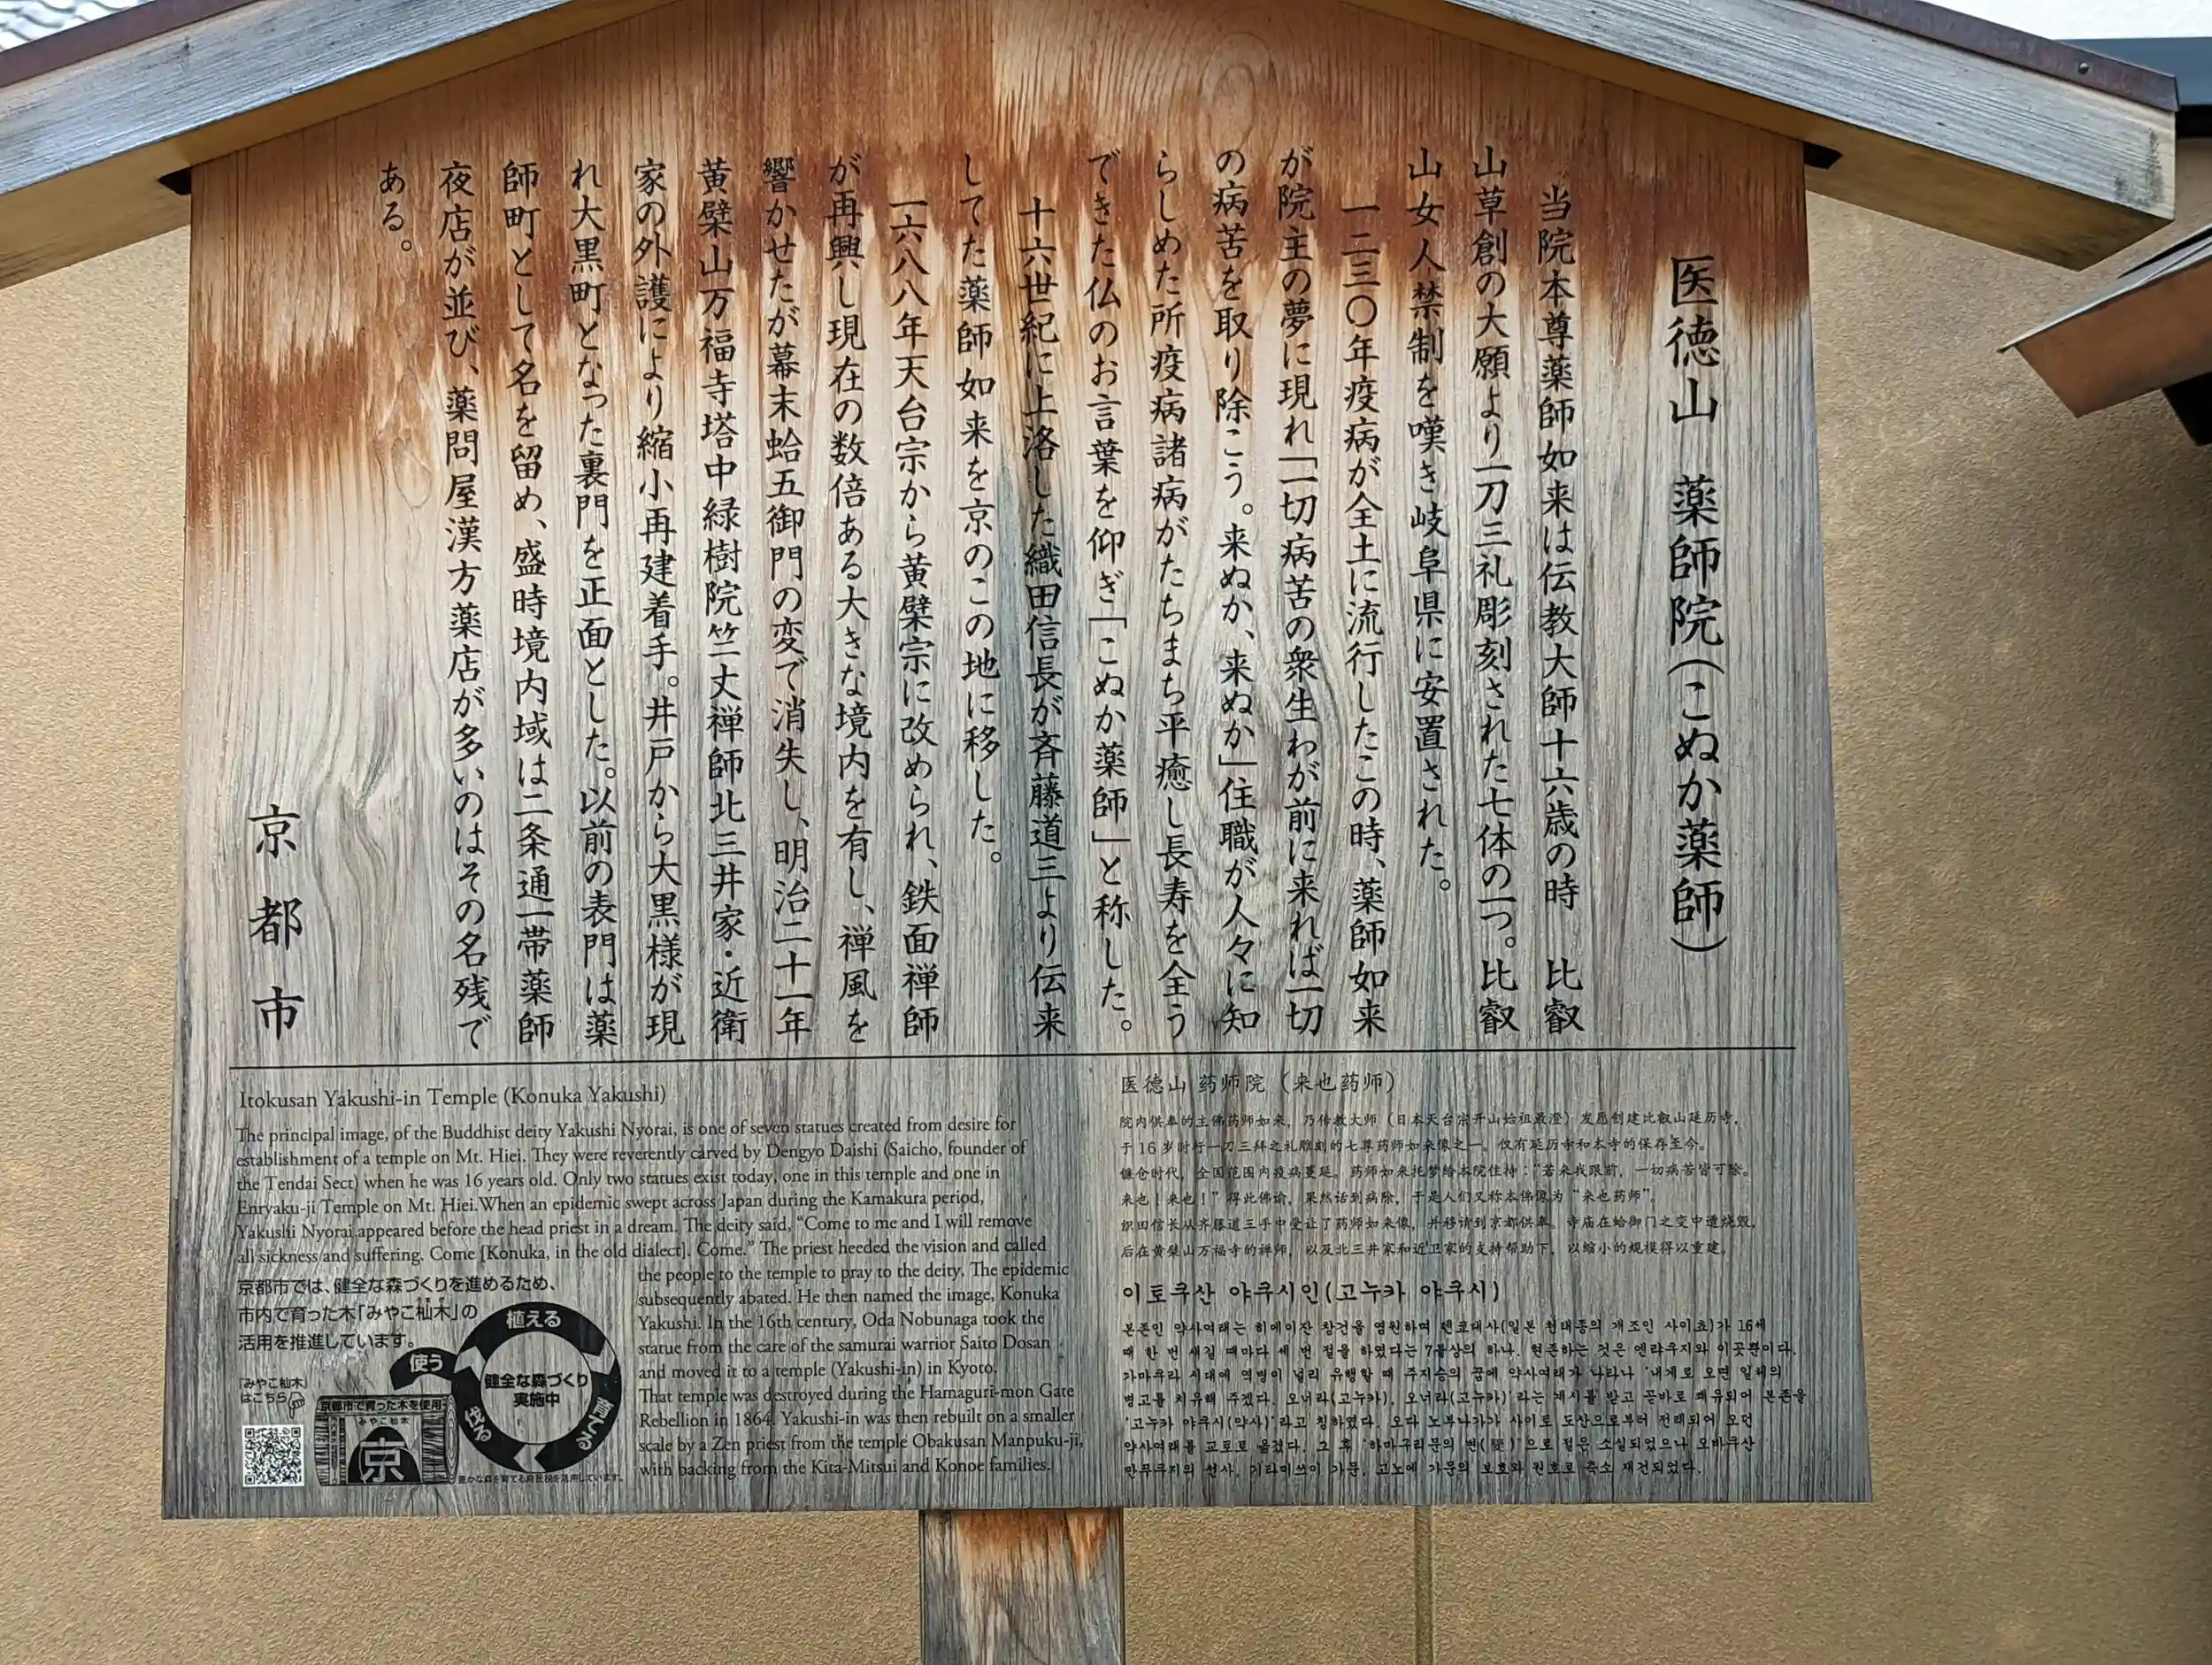 医徳山 薬師院(こぬか薬師)
当院本尊薬師如来は伝教大師十六歳の時 比叡
山草創の大願より一刀三礼彫刻された七体の一つ。比叡
山女人禁制を嘆き岐阜県に安置された。
一二三〇年疫病が全土に流行したこの時、薬師如来
が院主の夢に現れ「一切病苦の衆生わが前に来れば一切
の病苦を取り除こう。来ぬか、来ぬか」住職が人々に知
らしめた所疫病諸病がたちまち平癒し長寿を全う
できた仏のお言葉を仰ぎ「こぬか薬師」と称した。
十六世紀に上洛した織田信長が斉藤道三より伝来
してた薬師如来を京のこの地に移した。
一六八八年天台宗から黄檗宗に改められ、鉄面禅師
が再興し現在の数倍ある大きな境内を有し、禅風を
響かせたが幕末蛤五御門の変で消失し、明治二十一年
黄檗山万福寺塔中緑樹院竺丈禅師北三井家・近衛
家の外護により縮小再建着手。井戸から大黒様が現
れ大黒町となった裏門を正面とした。以前の表門は薬
師町として名を留め、盛時境内域は二条通一帯薬師
夜店が並び、薬問屋漢方薬店が多いのはその名残で
ある。
京都市
Itokusan Yakushi-in Temple (Konuka Yakushi)
The principal image, of the Buddhist deity Yakushi Nyorai, is one of seven statues created from desire for
establishment of a temple on Mt. Hiei. They were reverently carved by Dengyo Daishi (Saicho, founder of
the Tendai Sect) when he was 16 years old. Only two statues exist today, one in this temple and one in
Enryaku-ji Temple on Mt. Hiei.When an epidemic swept across Japan during the Kamakura period,
Yakushi Nyorai appeared before the head priest in a dream. The deity said, “Come to me and I will remove
all sickness and suffering. Come [Konuka, in the old dialect]. Come.” The priest heeded the vision and called
the people to the temple to pray to the deity. The epidemic
subsequently abated. He then named the image, Konuka
Yakushi. In the 16th century, Oda Nobunaga took the
statue from the care of the samurai warrior Saito Dosan
and moved it to a temple (Yakushi-in) in Kyoto.
That temple was destroyed during the Hamaguri-mon Gate
Rebellion in 1864. Yakushi-in was then rebuilt on a smaller
scale by a Zen priest from the temple Obakusan Manpuku-ji,
with backing from the Kita-Mitsui and Konoe families.
京都市では、健全な森づくりを進めるため、
市内で育った木「みやこ杣木」の
活用を推進しています。
「みやこ杣木」
はこちら
植える
育てる
伐る
使う
健全な森づくり
実施中
京都市で育った木を使用
みやこ杣木
京
豊かな森を育てる府民税を活用しています。
医德山 药师院（来也药师）
院内供奉的主佛药师如来，乃传教大师（日本天台宗开山始祖最澄）发愿创建比叡山延历寺，
于16岁时行一刀三拜之礼雕刻的七尊药师如来像之一。仅有延历寺和本寺的保存至今。
镰仓时代，全国范围内疫病蔓延。药师如来托梦给本院住持：“若来我跟前，一切病苦皆可除。
来也！来也！”得此佛谕，果然话到病除，于是人们又称本佛像为“来也药师”。
织田信长从齐藤道三手中受让了药师如来像，并移请到京都供奉。寺庙在蛤御门之变中遭烧毁，
后在黄檗山万福寺的禅师，以及北三井家和近卫家的支持帮助下，以缩小的规模得以重建。
이토쿠산 야쿠시인(고누카 야쿠시)
본존인 약사여래는 히에이잔 창건을 염원하며 덴쿄대사(일본 천태종의 개조인 사이쵸)가 16세
때 한 번 새길 때마다 세 번 절을 하였다는 7불상의 하나. 현존하는 것은 엔랴쿠지와 이곳뿐이다.
가마쿠라 시대에 역병이 널리 유행할 때 주지승의 꿈에 약사여래가 나타나 '내게로 오면 일체의
병고를 치유해 주겠다. 오너라(고누카), 오너라(고누카)'라는 계시를 받고 곧바로 쾌유되어 본존을
'고누카 야쿠시(약사)'라고 칭하였다. 오다 노부나가가 사이토 도산으로부터 전래되어 오던
약사여래를 교토로 옮겼다. 그 후 '하마구리문의 변(変)'으로 절은 소실되었으나 오바쿠산
만푸쿠지의 선사, 기타미쓰이 가문, 고노에 가문의 보호와 원호로 축소 재건되었다.